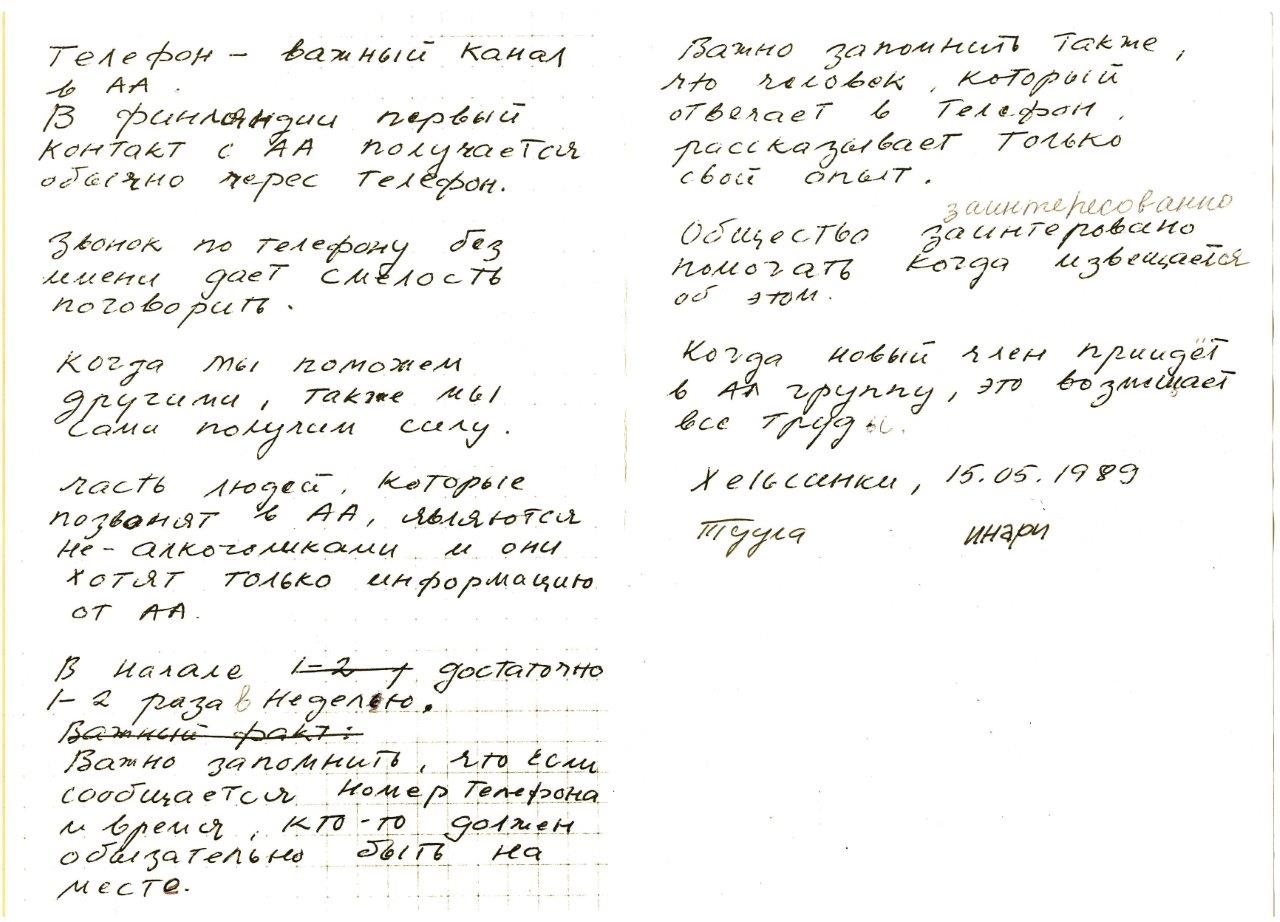 Телефон – важный канал
в АА.
В финляндии первый
контакт с АА получается
обычно черес телефон.
Звонок по телефону без
имени дает смелость
поговорить.
Когда мы поможем
другими, также мы
сами получим силу.
часть людей, которые
позвонят в АА, являются
не-алкоголиками и они
хотят только информацию
от АА.
В начале 1–2 достаточно
1–2 раза в неделю.
Важный факт:
Важно запомнить, что если
сообщается номер телефона
и время, кто-то должен
обязательно быть на
месте.
Важно запомнить также,
что человек, который
отвечает в телефон,
рассказывает только
свой опыт.
заинтересованно
Общество заинтеровано
помогать когда извещается
об этом.
Когда новый член приидёт
в АА группу, это возмещает
все труды.
Хельсинки, 15.05.1989
Туула инари